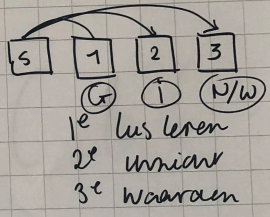 S 1 2 3
G I N/W
1e lus leren
2e inzicht
3e waarden